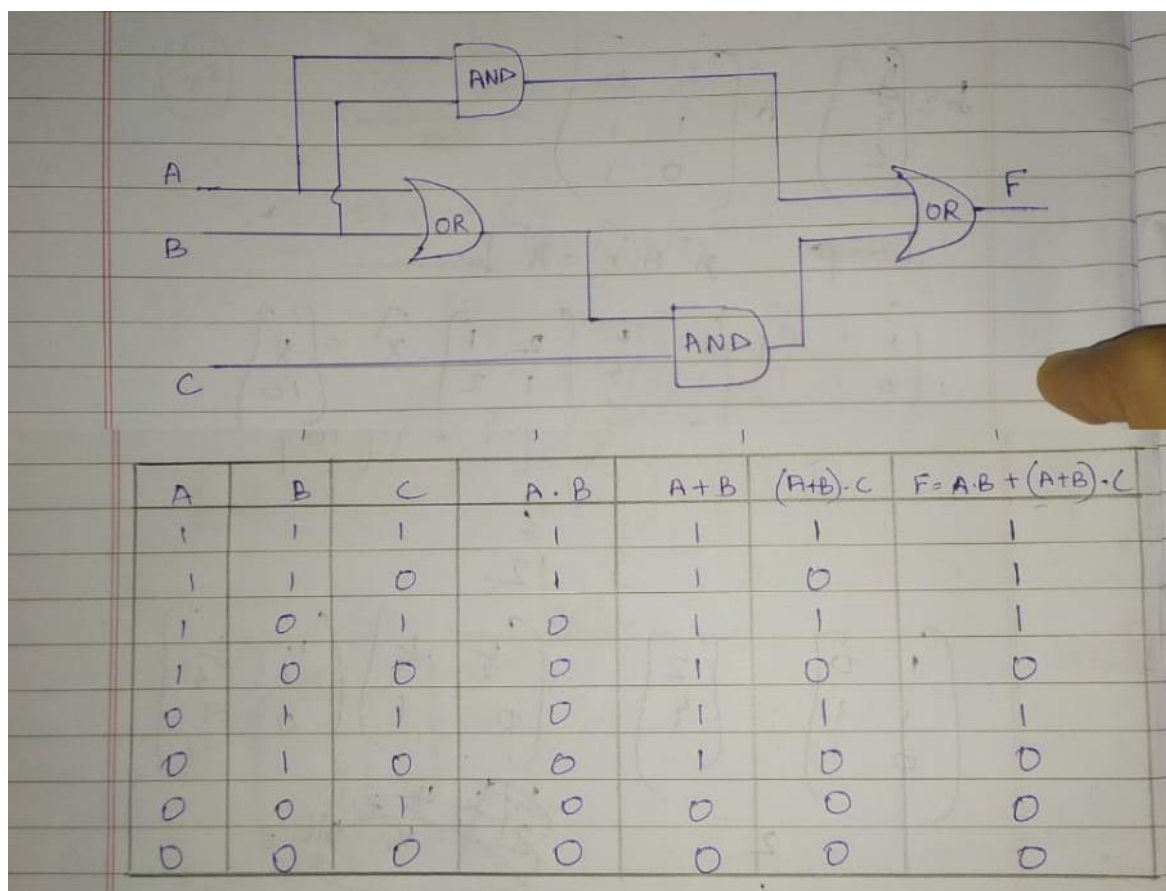 AND
A
F
OR
OR
B
AND
C
A B C A . B A + B (A+B) . C F = A.B + (A+B) . C
1 1 1 1 1 1 1
1 1 0 1 1 0 1
1 0 1 0 1 1 1
1 0 0 0 1 0 0
0 1 1 0 1 1 1
0 1 0 0 1 0 0
0 0 1 0 0 0 0
0 0 0 0 0 0 0